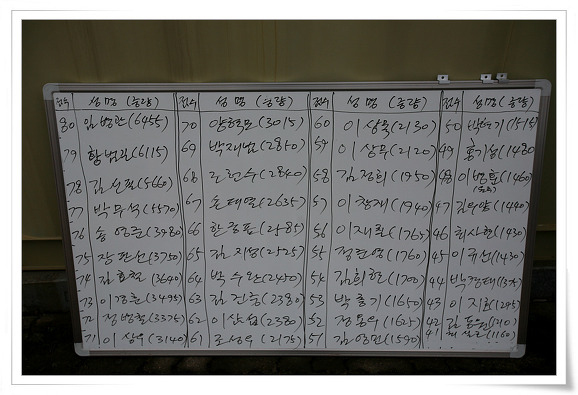 점수 성명(중량) 점수 성명(중량) 점수 성명(중량) 점수 성명(중량)
80 임범관(6455) 70 (3015) 60 이상욱(2130) 50
79 황범길(6115) 69 박재범(2850) 59 이상무(2120) 49 홍기성(1480)
78 김선필(5660) 68 (2840) 58 김정희(1950) 48 이병훈(1460)
77 박무석(4570) 67 손태영(2635) 57 이창재(1940) 47 (1440)
76 송영준(3980) 66 한광표(2585) 56 이재환(1765) 46 최사현(1430)
75 장판선(3750) 65 김지성(2525) 55 정진영(1760) 45 이유신(1430)
74 김효철(3640) 64 박수완(2450) 54 김희한(1700) 44 박경태
73 이경훈(3495) 63 김건중(2380) 53 박흥기(1650) 43 이지환(1295)
72 정병철(3375) 62 이상섭(2380) 52 정용욱(1625) 42 김동원
71 이상우(3140) 61 조성우(2175) 51 김영민(1590) 41 (1160)